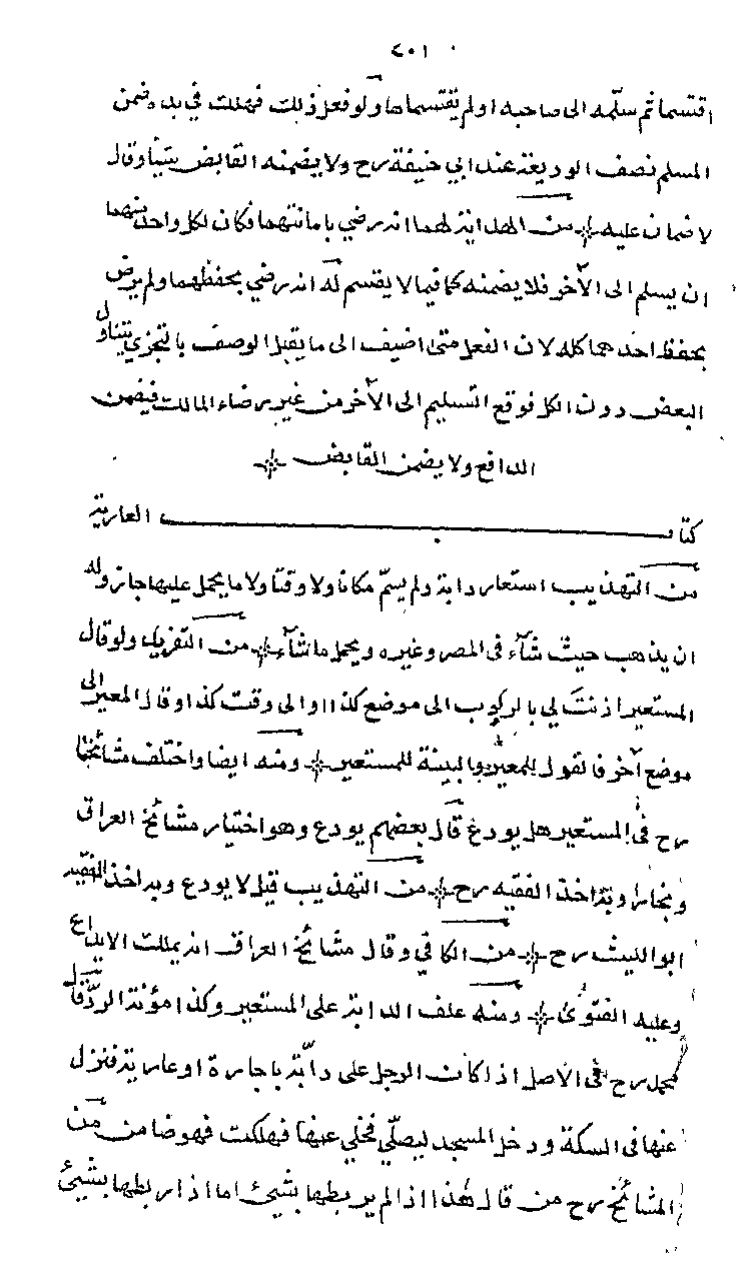 ٤٠١
اقتسما ثم سلّمه الى صاحبه او لم يقتسماها ولو فعل ذلك فهلك في يده ضمن
المسلم نصف الوديعة عند ابي حنيفة رح ولا يضمنه القابض شيئا وقال
لا ضمان عليه من الهداية لهما انه رضي بامانتهما فكان لكل واحد منهما
ان يسلم الى الآخر فلا يضمنه كما فيما لا يقتسم له انه رضي بحفظهما ولم يرض
بحفظ احدهما كله لان الفعل متى اضيف الى ما يقبل الوصف بالتجزي يتناول
البعض دون الكل فوقع التسليم الى الآخر من غير رضاء المالك فيضمن
الدافع ولا يضمن القابض
كتاب العارية
من التهذيب استعار دابة ولم يسمّ مكانا ولا وقتا ولا ما يحمل عليها جاز وله
ان يذهب حيث شآء في المصر وغيره ويحمل ما شآء من التفريد ولو قال
المستعير اذنت لي بالركوب الى موضع كذا او الى وقت كذا وقال المعير الى
موضع آخر فالقول للمعير والبينة للمستعير ومنه ايضا واختلف مشائخنا
رح في المستعير هل يودع قال بعضهم يودع وهو اختيار مشائخ العراق
وبه اخذ الفقيه رح من التهذيب قيل لا يودع وبه اخذ الفقيه
ابو الليث رح من الكافي وقال مشائخ العراق انه يملك الايداع
وعليه الفتوى ومنه علف الدابة على المستعير وكذا مؤنة الردّ قال
محمد رح في الاصل اذا كان الرجل على دآبّة باجارة او عارية فنزل
عنها في السكة ودخل المسجد ليصلّي فخلي عنها فهلكت فهو ضامن من
المشائخ رح من قال هذا اذا لم يربطها بشيئ اما اذا ربطها بشيئ